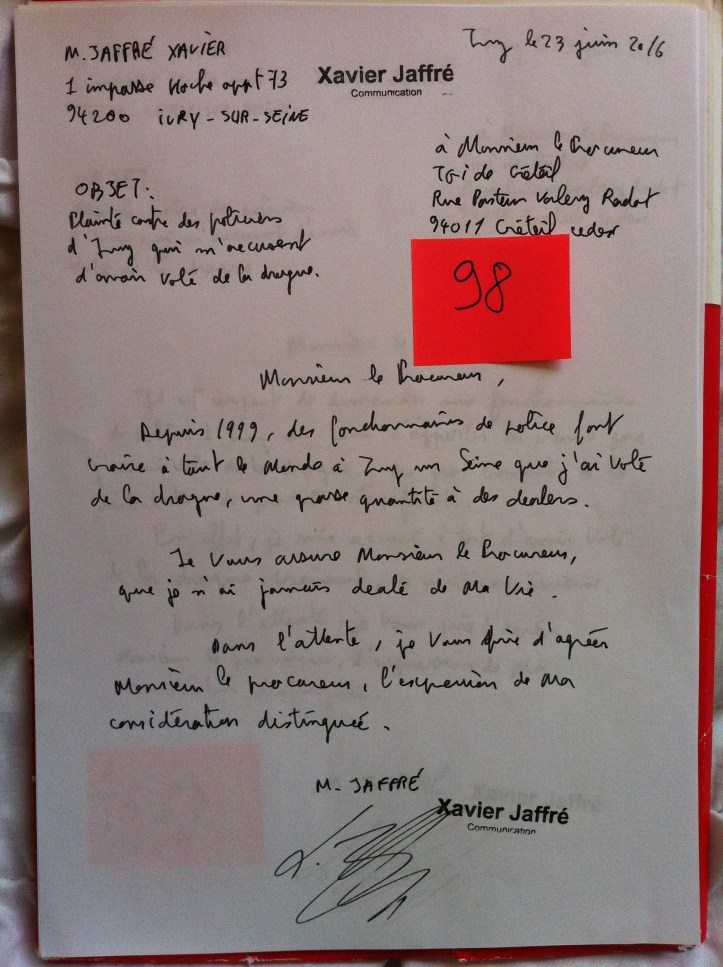 M. JAFFRÉ XAVIER
1 impasse Hoche appt 73
94200 IVRY-SUR-SEINE
Xavier Jaffré
Communication
Ivry le 23 juin 2016
à Monsieur le Procureur
TGI de Créteil
Rue Pasteur Valery Radot
94011 Créteil cedex
OBJET:
Plainte contre des policiers
d'Ivry qui m'accusent
d'avoir volé de la drogue.
98
Monsieur le Procureur,
Depuis 1999, des fonctionnaires de police font
croire à tout le monde à Ivry sur Seine que j'ai volé
de la drogue, une grosse quantité à des dealers.
Je vous assure Monsieur le Procureur,
que je n'ai jamais dealé de ma vie.
Dans l'attente, je vous prie d'agréer
Monsieur le procureur, l'expression de ma
considération distinguée.
M. JAFFRÉ
Xavier Jaffré
Communication